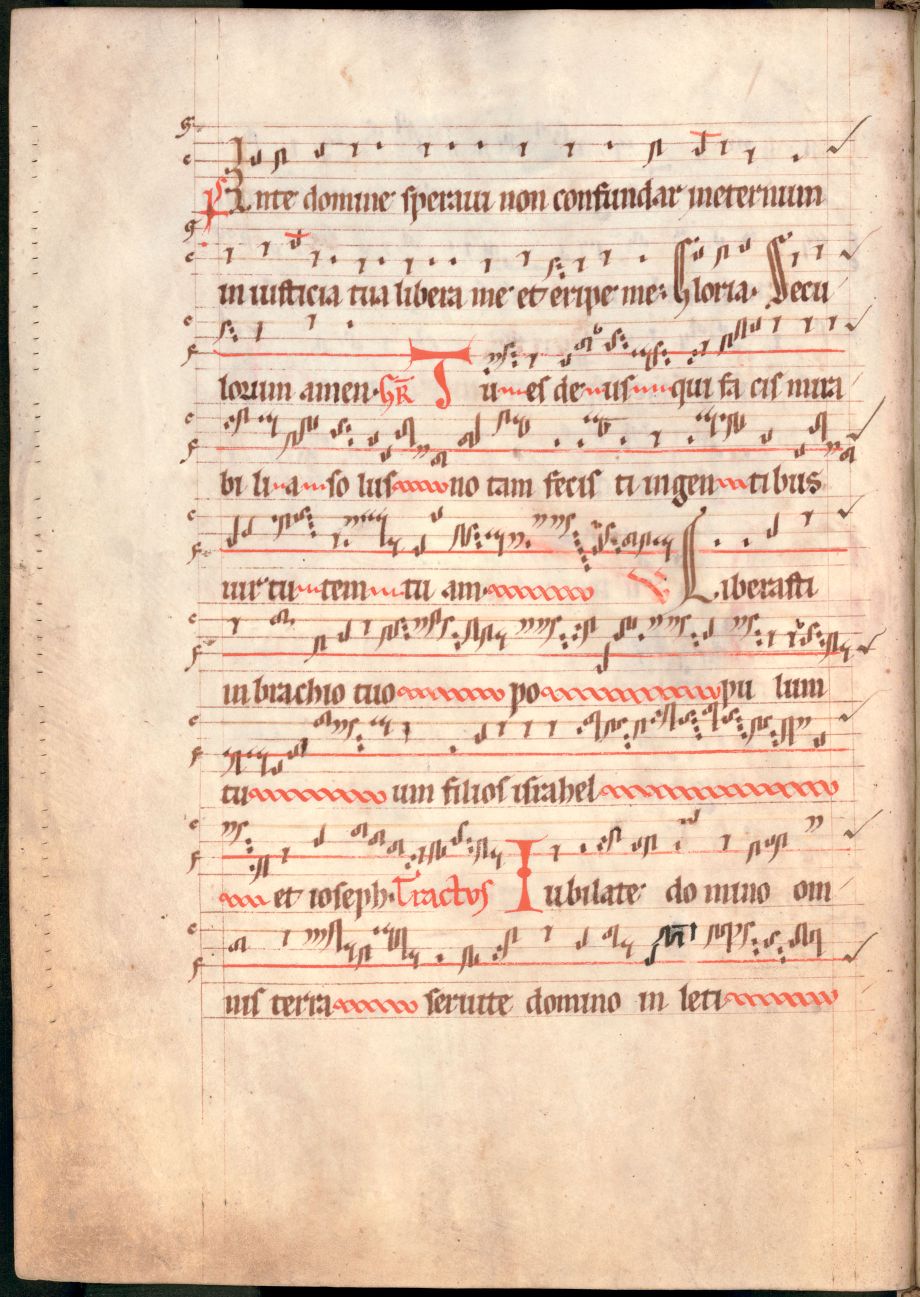 ps Inte domine speraui non confundar ineternum
in iusticia tua libera me et eripe me: Gloria. Secu
lorum amen. Tu es deus qui fa cis mira
bi li a so lus no tam fecis ti in gen tibus
uir tu tem tu am V Liberasti
in brachio tuo po pu lum
tu um filios israhel
et ioseph. Tractus Iubilate do mino om
nis terra seruite domino in leti